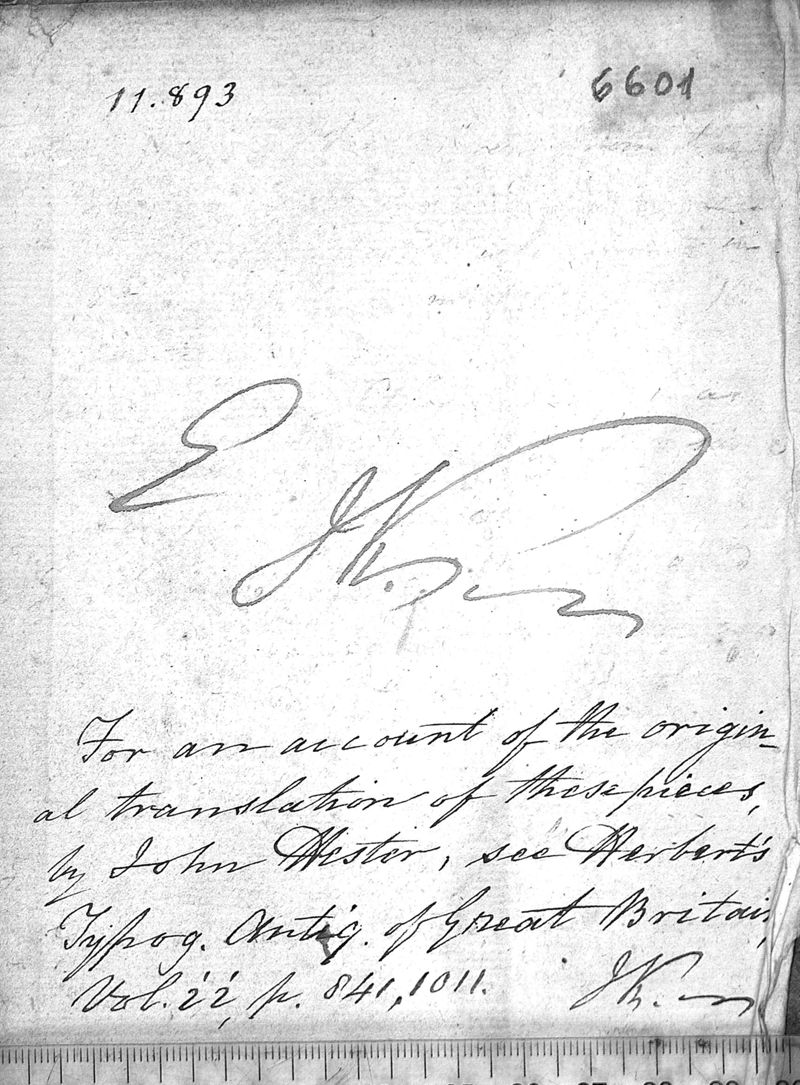 11.893
6601
E
JK.
For an account of the origin-
al translation of these pieces,
by John Hester, see Herbert's
Typog. Antiq. of Great Britain,
Vol. ii, p. 841, 1011.
JK.